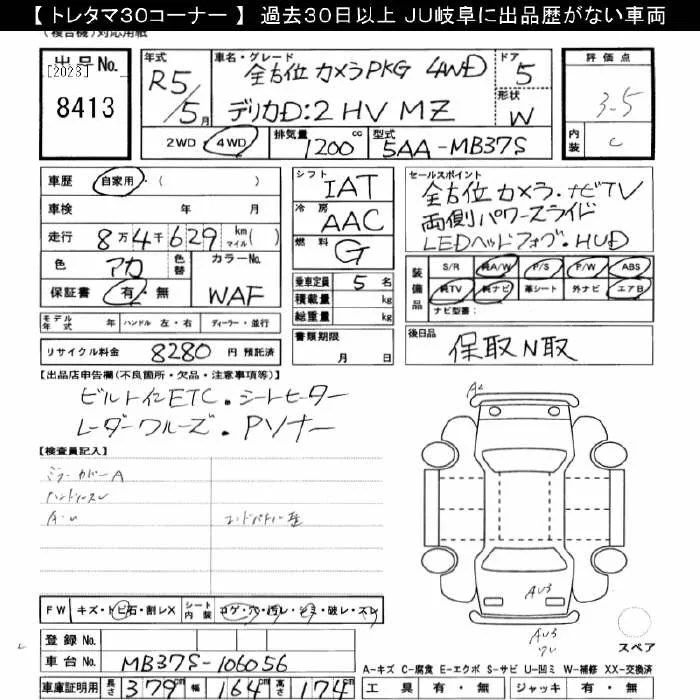 【 トレタマ30コーナー 】 過去30日以上 JU岐阜に出品歴がない車両
(複合機)対応用紙
出品No.
[2023]
8413
年式
R5/5月
車名・グレード
全方位カメラPKG 4WD
デリカD:2 HV MZ
ドア
5
形状
W
評価点
3.5
内装
C
2WD 4WD
排気量 1200 cc
型式 5AA-MB37S
車歴 自家用・( )
車検 年 月
走行 8万4千629 km マイル( )
色 アカ 色替 カラーNo.
保証書 有・無 WAF
モデル年式 年 ハンドル 左・右 ディーラー・並行
リサイクル料金 8280 円 預託済
シフト IAT
冷房 AAC
燃料 G
乗車定員 5 名
積載量 kg
総重量 kg
書類期限
月 日
セールスポイント
全方位カメラ・ナビTV
両側パワースライド
LEDヘッドフォグ・HUD
装備品
S/R 純A/W P/S P/W ABS
純TV 純ナビ 革シート 外ナビ エアB
ナビ型番:
後日品
保取N取
【出品店申告欄(不良箇所・欠品・注意事項等)】
ビルトインETC・シートヒーター
レーダークルーズ・Pソナー
【検査員記入】
ミラーカバーA
ハンドルスレ
A・U
A2
AU3
AU3
スペア
FW キズ・トビ石・割レX シート内装 コゲ・穴・汚レ・シミ・破レ・スレ
登録No.
車台No. MB37S-106056
車庫証明用 長さ 379 cm 幅 164 cm 高さ 174 cm
A-キズ C-腐食 E-エクボ S-サビ U-凹ミ W-補修 XX-交換済
工具 有・無 ジャッキ 有・無